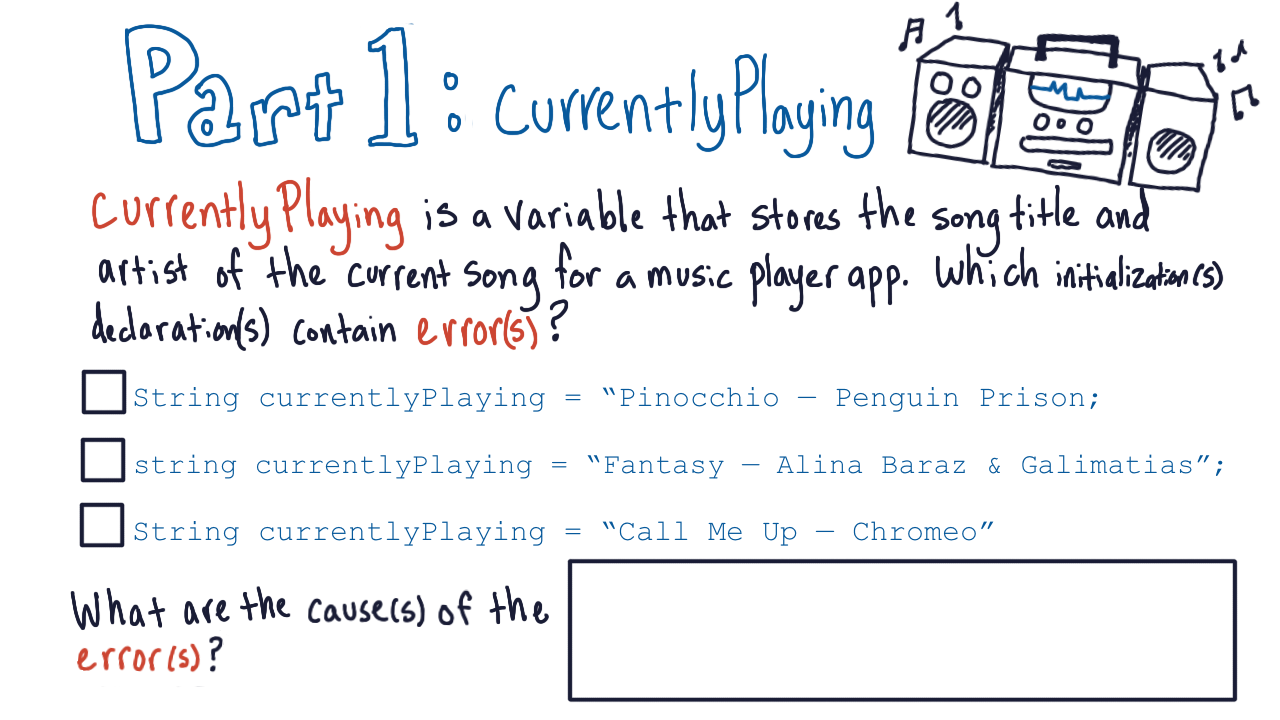 Part 1: CurrentlyPlaying
CurrentlyPlaying is a variable that stores the song title and
artist of the current song for a music player app. Which initialization(s)
declaration(s) contain error(s)?
String currentlyPlaying = “Pinocchio – Penguin Prison;
string currentlyPlaying = “Fantasy – Alina Baraz & Galimatias”;
String currentlyPlaying = “Call Me Up – Chromeo”
What are the cause(s) of the
error(s)?